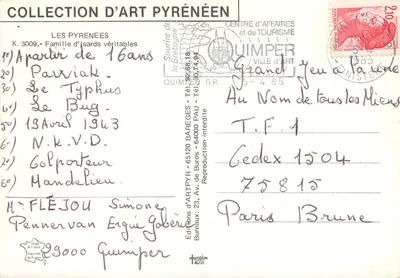 COLLECTION D'ART PYRÉNÉEN
LES PYRENEES
K. 3009. - Famille d'isards véritables
1°) A partir de 16 ans
2°) Parviak
3°) Le Typhus
4°) Le Bug
5°) 19 Avril 1943
6°) N.K.V.D
7°) Colporteur
8°) Mandelieu
Me FLÉJOU Simone
Pennervan Ergué Gabéric
29000 Quimper
Editions d'ARTPYR - 65120 BAREGES - Tél. 92.68.18
Bureaux: 23, Av. de Buros - 64000 PAU - Tél.
Reproduction interdite
Sourire de
la Bretagne
CENTRE d'AFFAIRES
et de TOURISME
QUIMPER
VILLE d'ART
QUIMPER R.P.
2,10
Grand jeu à la une
Au Nom de tous les Miens
T.F.1
Cedex 1504
75815
Paris Brune